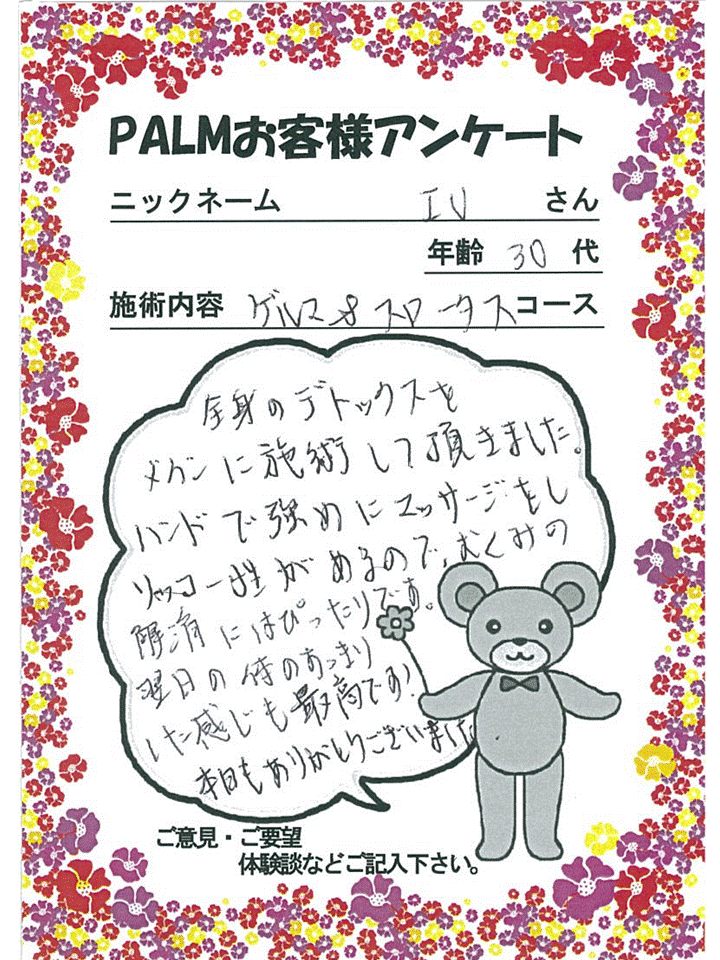 PALMお客様アンケート
ニックネーム IU さん
年齢 30 代
施術内容 ゲルマ&スロータスコース
全身のデトックスを
メインに施術して頂きました。
ハンドで強めにマッサージをし
があるので、むくみの
解消にはぴったりです。
翌日の体のあっまり
した感じも最高です!
本日もありがとうございました
ご意見・ご要望
体験談などご記入下さい。